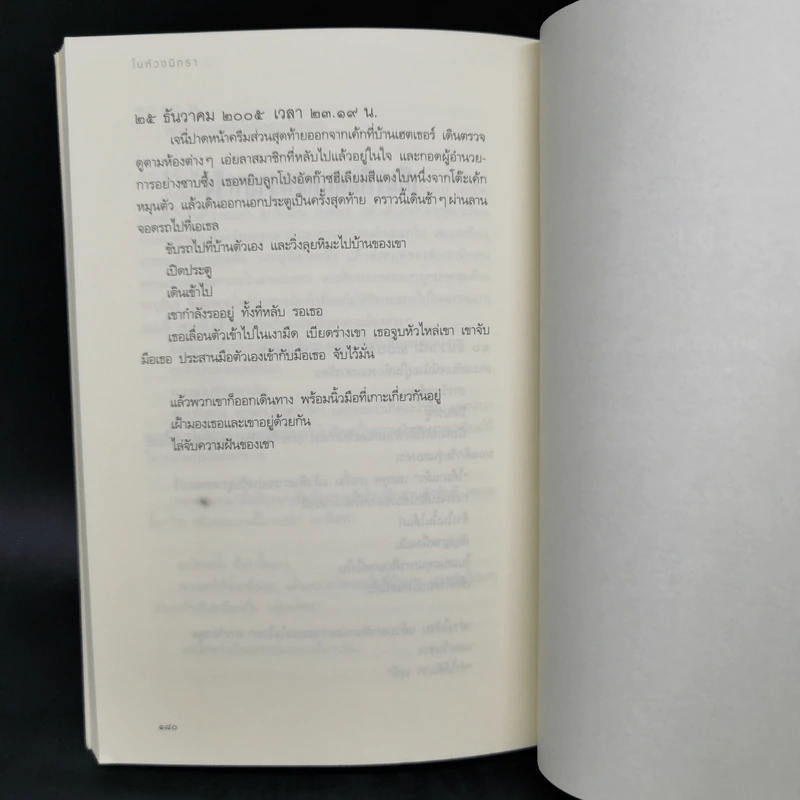 ในห้วงนิทรา
๒๕ ธันวาคม ๒๐๐๕ เวลา ๒๓.๑๙ น.
เจนี่ปาดหน้าครีมส่วนสุดท้ายออกจากเค้กที่บ้านเฮตเธอร์ เดินตรวจ
ดูตามห้องต่างๆ เอ่ยลาสมาชิกที่หลับไปแล้วอยู่ในใจ และกอดผู้อำนวย-
การอย่างซาบซึ้ง เธอหยิบลูกโป่งอัดก๊าซฮีเลียมสีแดงใบหนึ่งจากโต๊ะเค้ก
หมุนตัว แล้วเดินออกนอกประตูเป็นครั้งสุดท้าย คราวนี้เดินช้าๆ ผ่านลาน
จอดรถไปที่เอเธล
ขับรถไปที่บ้านตัวเอง และวิ่งลุยหิมะไปบ้านของเขา
เปิดประตู
เดินเข้าไป
เขากำลังรออยู่ ทั้งที่หลับ รอเธอ
เธอเลื่อนตัวเข้าไปในเงามืด เบียดร่างเขา เธอจูบหัวไหล่เขา เขาจับ
มือเธอ ประสานมือตัวเองเข้ากับมือเธอ จับไว้มั่น
แล้วพวกเขาก็ออกเดินทาง พร้อมนิ้วมือที่เกาะเกี่ยวกันอยู่
เฝ้ามองเธอและเขาอยู่ด้วยกัน
ไล่จับความฝันของเขา
๑๘๐